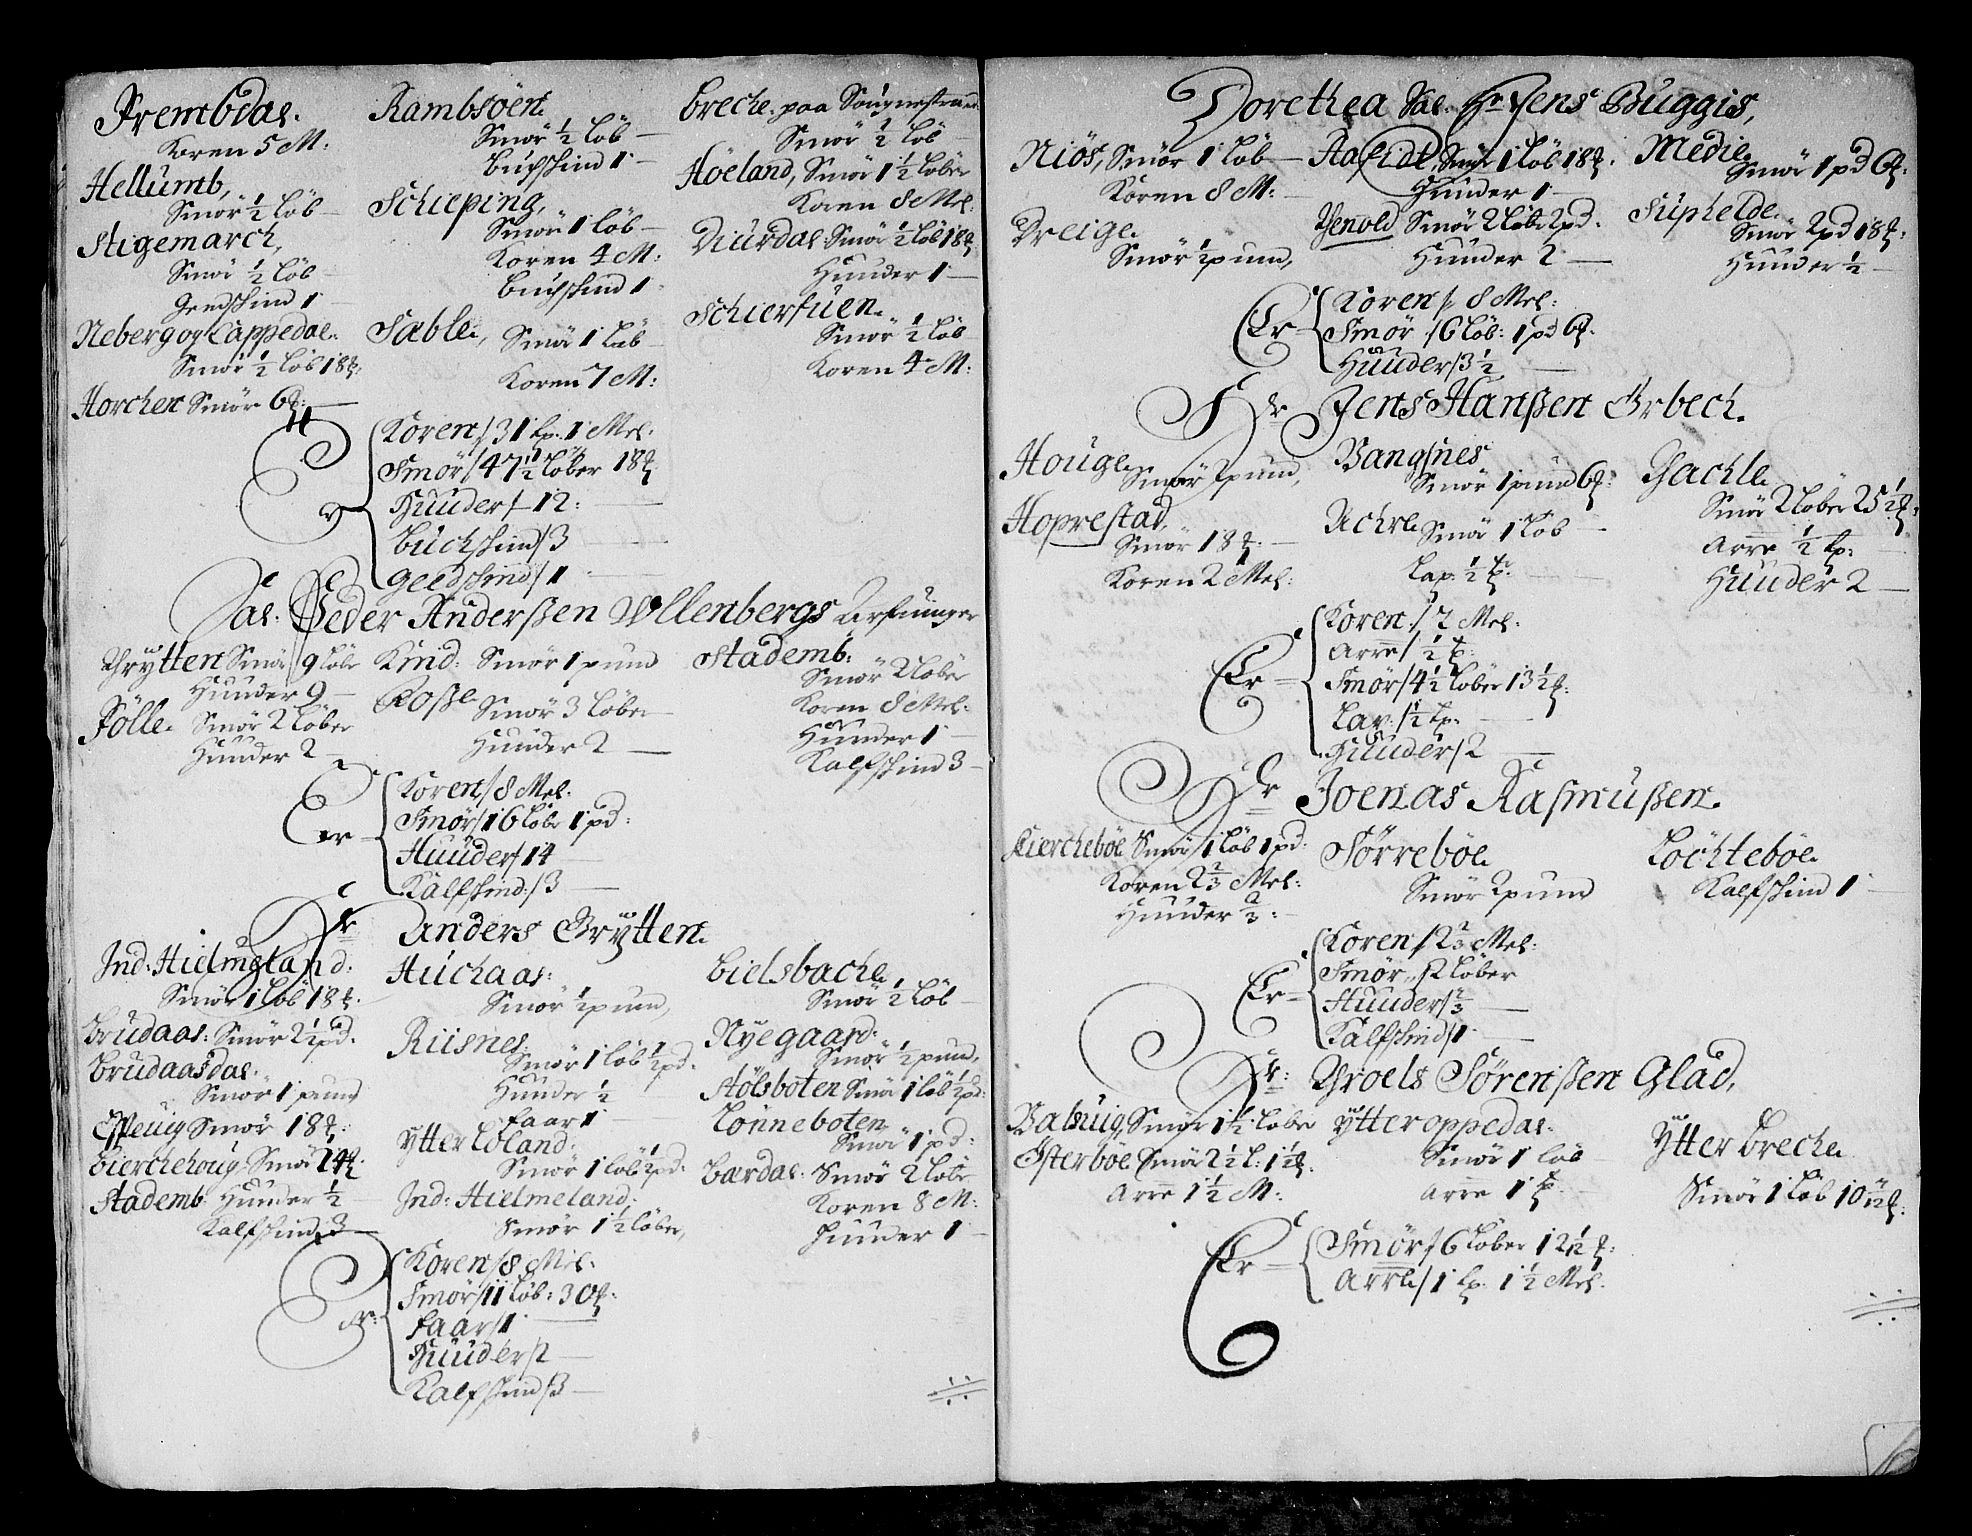 Frembdal.
Koren 5 M:
Hellumb,
Smör ½ Löb
Stigemarch,
Smör ½ Löb
Geedskind 1
Neberg og Cappedal.
Smör ½ Löb 18 ℔.
Horchen Smör 6 ℔:
Rambsöen.
Smör ½ Löb
Buchskind 1
Schieping,
Smör 1 Löb
Koren 4 M:
Buchskind 1
Sable, Smör 1 Löb
Koren 7 M:
Breche paa
Smör ½ Löb
Höeland, Smör 1½ Löber
Koren 8 Mel:
Diurdal Smör ½ Löb 18 ℔
Huuder 1
Schierfuen.
Smör ½ Löb
Koren 4 M:
Er
Koren / 31 tp. 1 Mel.
Smör / 47½ Löber 18 ℔
Huuder / 12:
Buchskind / 3
Geedskind / 1
Sal. Peder Anderßen Wllenbergs Arfuinger
Thrÿtten Smör 9 Löbe
Huuder 9
Fölle. Smör 2 Löber
Huuder 2
Kind: Smör 1 pund
Roße Smör 3 Löber
Huuder 2
Stademb:
Smör 2 Löber
Koren 8 Mel:
Huuder 1
Kalfskind 3
Er
Koren / 8 Mel.
Smör / 16 Löbe 1 pd:
Huuder / 14
Kalfskind: / 3
Hr Anders Grÿtten.
Ind: Hielmeland:
Smör 1 Löb 18 ℔.
Brudaas: Smör 2½ pd.
Brudaasdal.
Smör 1 pund
Espeuig Smör 18 ℔:
Bierchehoug Smör 14 ℔.
Stademb Huuder ½
Kalfskind 3
Huchaas:
Smör ½ pund,
Riisnes:
Smör 1 Löb ½ pd.
Huuder ½
Faar 1
Ytter Eoland:
Smör 1 Löb ½ pd.
Ind: Hielmeland:
Smör 1½ Löber,
Bielsbache
Smör ½ Löb
Nÿegaard:
Smör ½ pund,
Hölsboten Smör 1 Löb ½ pd:
Lönneboten
Smör 1 pd:
Bardal Smör 2 Löbe
Koren 8 M:
Huuder 1
Er:
Koren / 8 Mel.
Smör / 11 Löb: 30 ℔.
Faar / 1
Huuder / 2
Kalfskind / 3
Dorethea Sal. Hr Jens Buggis,
Niös, Smör 1 Löb
Koren 8 M:
Dreige
Smör ½ pund,
Smör 1 Löb 18 ℔.
Huuder 1
Henold Smör 2 Löbe 2 pd.
Huuder 2
Medie
Smör 1 pd 6 ℔.
Suphelde
Smör 2 pd 18 ℔:
Huuder ½
Er
Koren / 8 Mel:
Smör / 6 Löb: 1 pd 6 ℔.
Huuder / 3½
Hr Jens Hanßen Örbech.
Houge
Smör 2 pund,
Hoprestad,
Smör 18 ℔.
Koren 2 Mel:
Vangsnes
Smör 1 pund 6 ℔:
Achrle Smör 1 Löb
Lax. ½ tp.
Thachle
Smör 2 Löber 25½ ℔:
Arre ½ tp:
Huuder 2
Er
Koren / 2 Mel.
Arre / ½ tp:
Smör / 4½ Löber 13½ ℔:
Lax: / ½ tp.
Huuder / 2
Hr Joenas Rasmußen.
Kiercheböe Smör 1 Löb 1 pd:
Koren 2⅔ Mel:
Huuder ⅔:
Sörreböe
Smör 2 pund
Löchteböe
Kalfskind 1
Er
Koren / 2⅔ Mel:
Smör / 2 Löber
Huuder / ⅔
Kalfskind / 1
Hr: Throels Sörenßen Glad,
Balsuig, Smör 1½ Löber
Österböe Smör 2½ L: 1½ ℔.
Arre 1½ M:
Ÿtter oppedal.
Smör 1 Löb
Arre 1 tp.
Ÿtter Breche
Smör 1 Löb 10 ℔.
Er
Smör / 6 Löber 12½ ℔:
Arre / 1 tp. 1½ Mel.